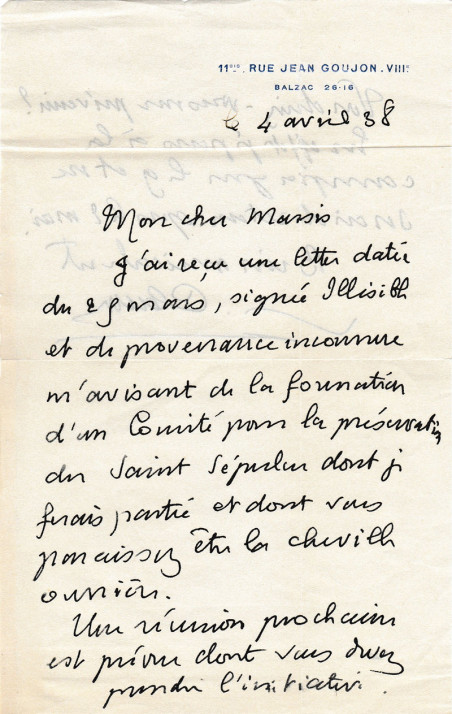 11bis, RUE JEAN GOUJON. VIIIe
BALZAC 26-16
le 4 avril 38
Mon cher Massis
J'ai reçu une lettre datée
du 29 mars, signée Illisible
et de provenance inconnue
m'avisant de la formation
d'un Comité pour la préservation
du Saint Sépulcre dont je
ferais partie et dont vous
paraissez être la cheville
ouvrière.
Une réunion prochaine
est prévue dont vous devez
prendre l'initiative.